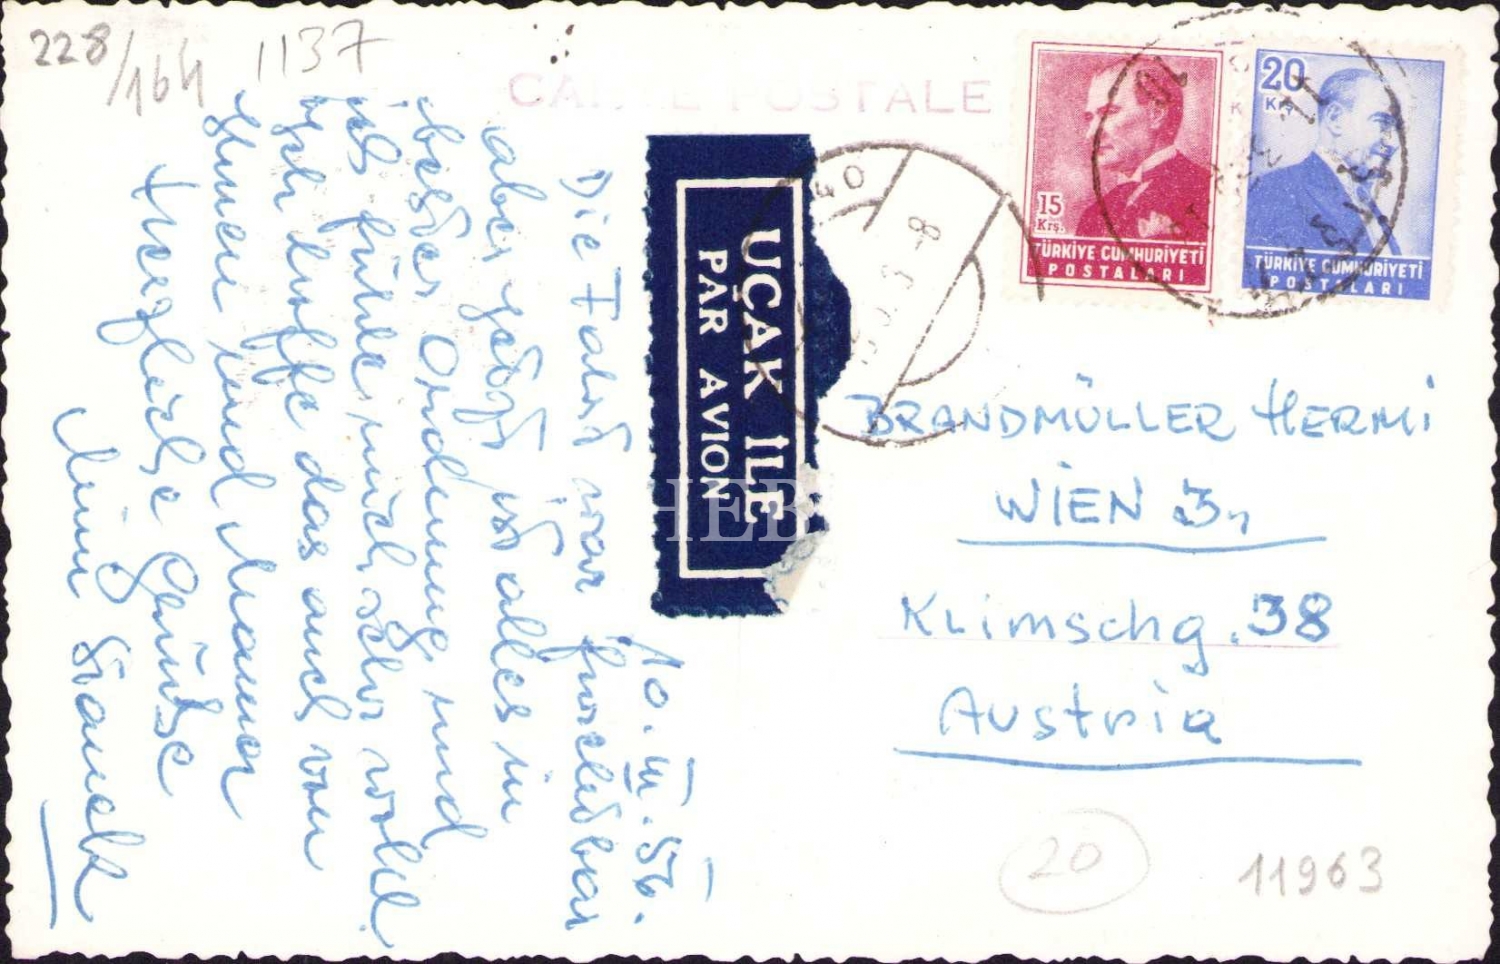 228/164
1137
CARTE POSTALE
15
Krş.
TÜRKİYE CUMHURİYETİ
POSTALARI
20
Krş
TÜRKİYE CUMHURİYETİ
POSTALARI
UÇAK İLE
PAR AVION
10. III. 56.
Die Fahrt war furchtbar
aber jetzt ist alles in
bester Ordnung und
ich fühle mich sehr wohl.
Ich hoffe das auch von
Ihnen und Mama
Herzliche Grüße
BRANDMÜLLER HERMI
WIEN 3,
Klimschg. 38
Austria
20
11963
HEB